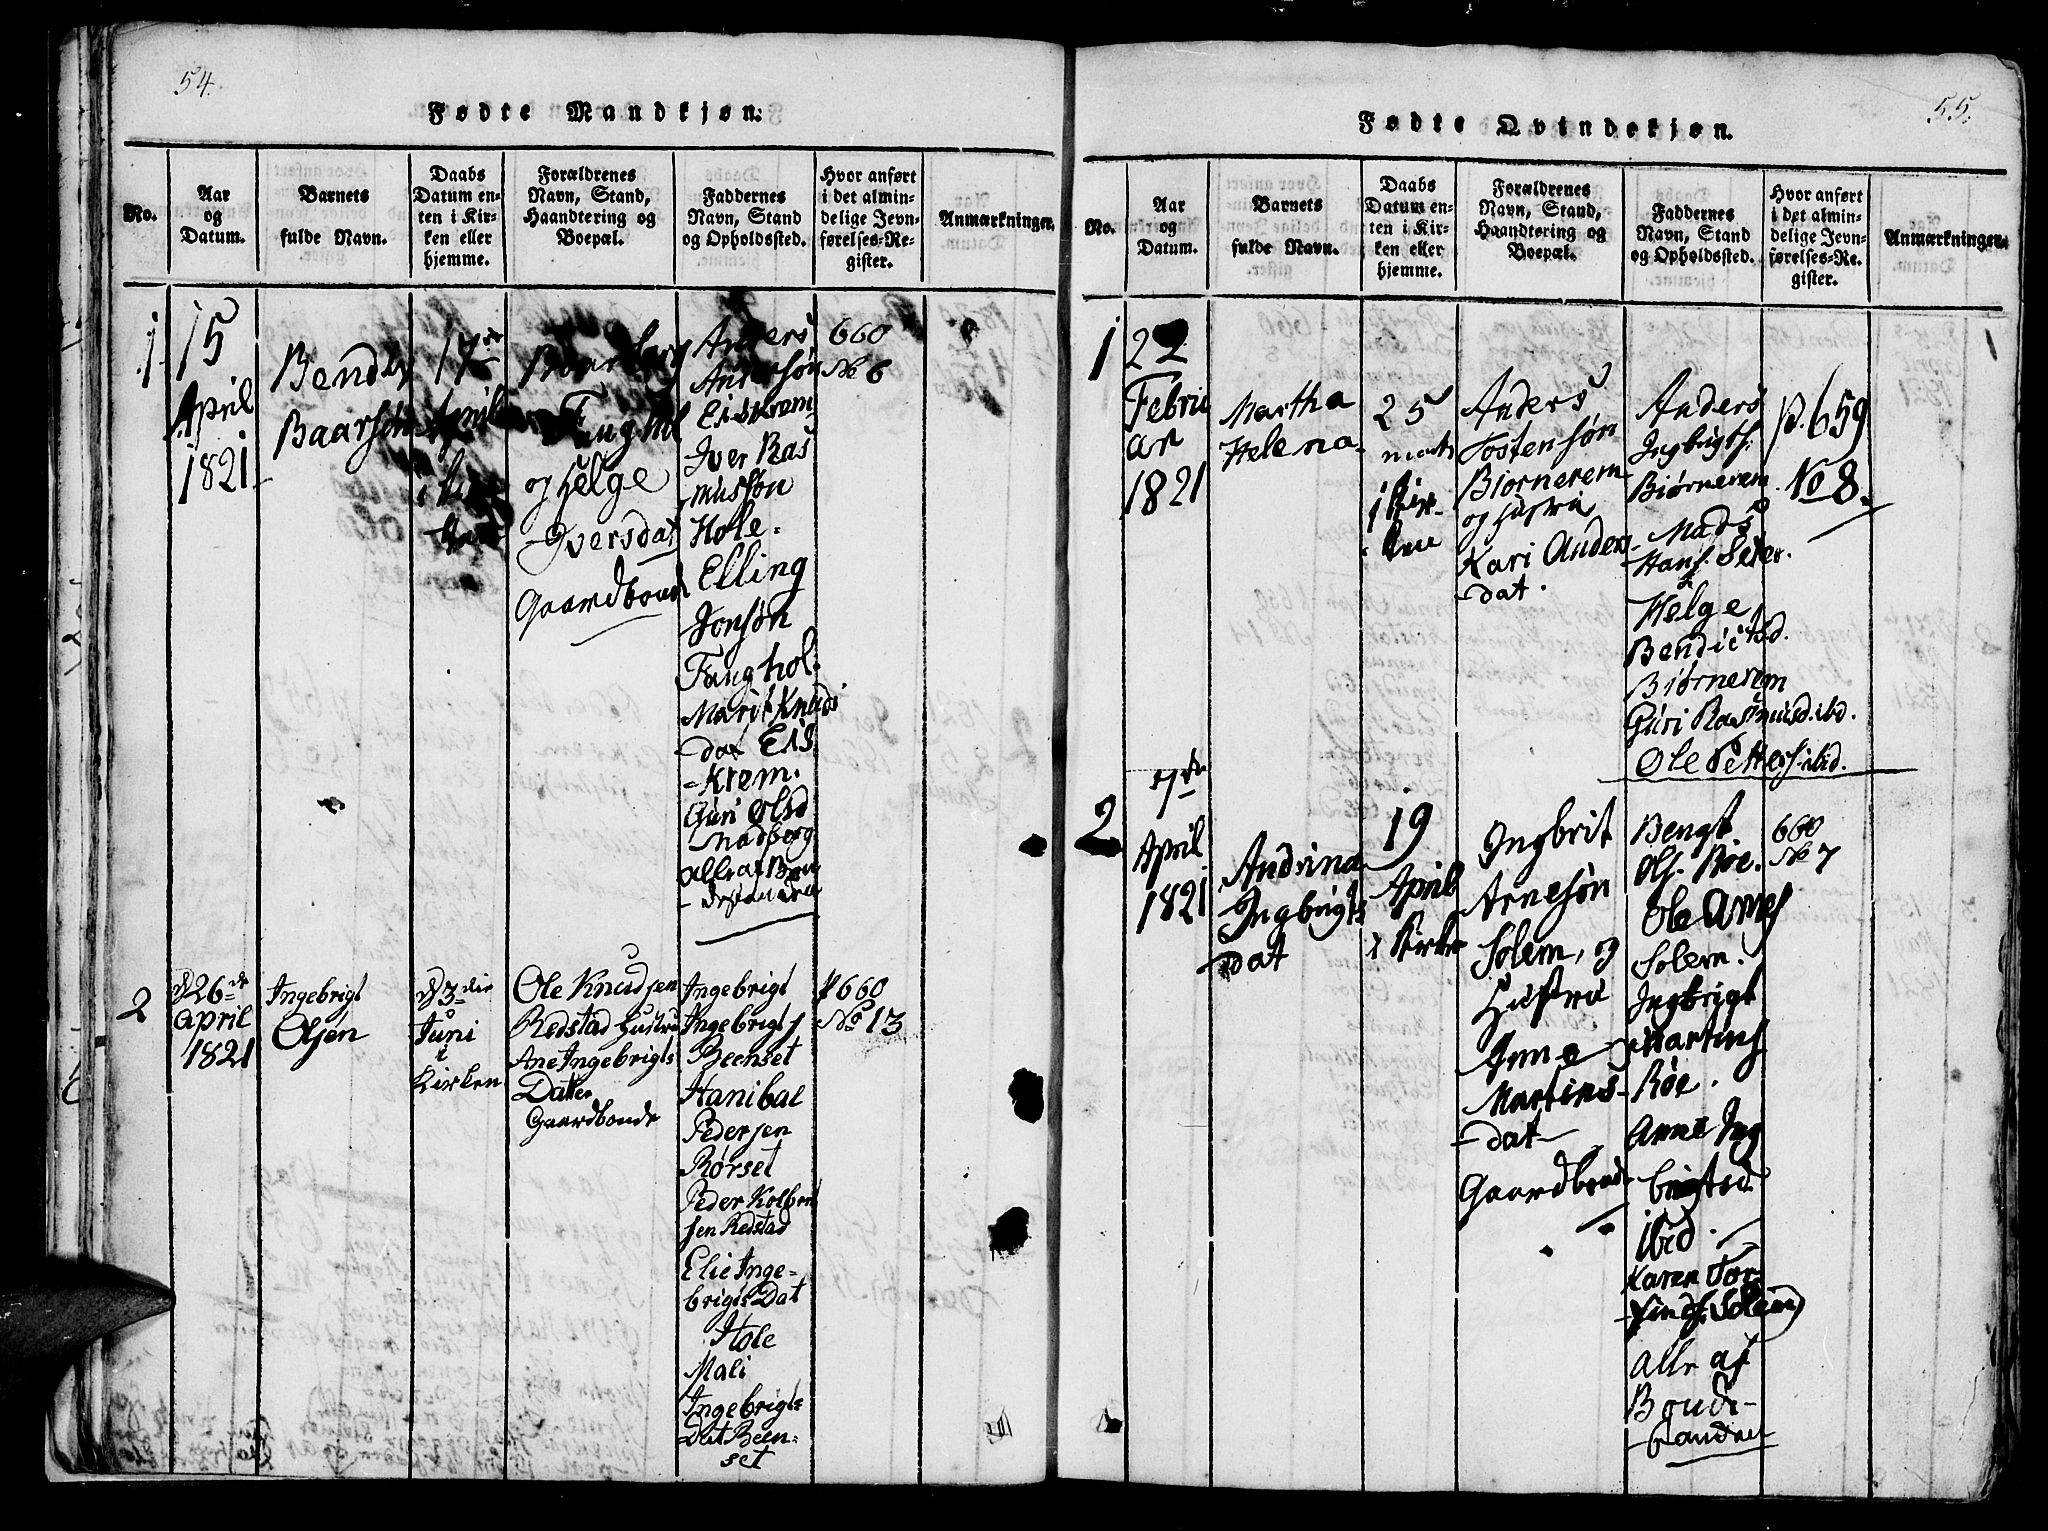 54.
Fødte Mandkjøn.
No.
Aar
og
Datum.
Barnets
fulde Navn.
Daabs
Datum en-
ten i Kir-
ken eller
hjemme.
Forældrenes
Navn, Stand,
Haandtering og
Boepæl.
Faddernes
Navn, Stand
og Opholdssted.
Hvor anført
i det almin-
delige Jevn-
førelses-Re-
gister.
Anmærkninger.
1
15
April
1821
Baarsøn
17de
April
i
og Helge
Iversdat
Gaardbonde
Anders
Andersøn
Eiskrem
Iver Ras
mussøn
Hole-
Elling
Jonsøn
Fanghol
Marit Knuds
dat Eis
-krem.
Guri Olsd
Nadberg
alle af Bon
destanden
660
No 6
2
d 26de
April
1821
Ingebrigt
Olsen
d 3die
Juni
i
Kirken
Ole Knudsen
Redstad Hustru
Ane Ingebrigts
Datter
Gaardbonde
Ingebrigt
Ingebrigts
Beenset
Hanibal
Pedersen
Rørset
Peder Kolben
sen Redstad
Elie Inge-
brigts Dat
Hole
Mali
Ingebrigts
Dat Been-
set
p 660
No 13
55.
Fødte Qvindekjøn.
No.
Aar
og
Datum.
Barnets
fulde Navn.
Daabs
Datum en-
ten i Kir-
ken eller
hjemme.
Forældrenes
Navn, Stand,
Haandtering og
Boepæl.
Faddernes
Navn, Stand
og Opholdssted.
Hvor anført
i det almin-
delige Jevn-
førelses-Re-
gister.
Anmærkninger.
1
22
Febru
ar
1821
Martha
Helena
25
marts
i Kir-
ken
Anders
Tostensøn
Biornerem
og Hustru
Kari Anders
dat.
Anders
Ingbrigts.
Biørnerem
Mads
Hans. Seter.
Helge
Bendictsd.
Biørnerem
Guri Rasmusd. ibd.
Ole Petters. ibid.
p. 659
No 8.
2
7de
April
1821
Andrina
Ingbrigts
dat
19
April
i Kirke
Ingbrit
Arnesøn
Solem, og
Hustru
Anne
Martins-
dat
Gaardbonde
Bengt
Ols. Røe.
Ole Arnes
Solem.
Ingbrigt
Martins
Røe.
Anne Ing
brigtsd
ibid.
Karen Tor-
finds. Solem
alle af
Bonde-
standen
660
No 7